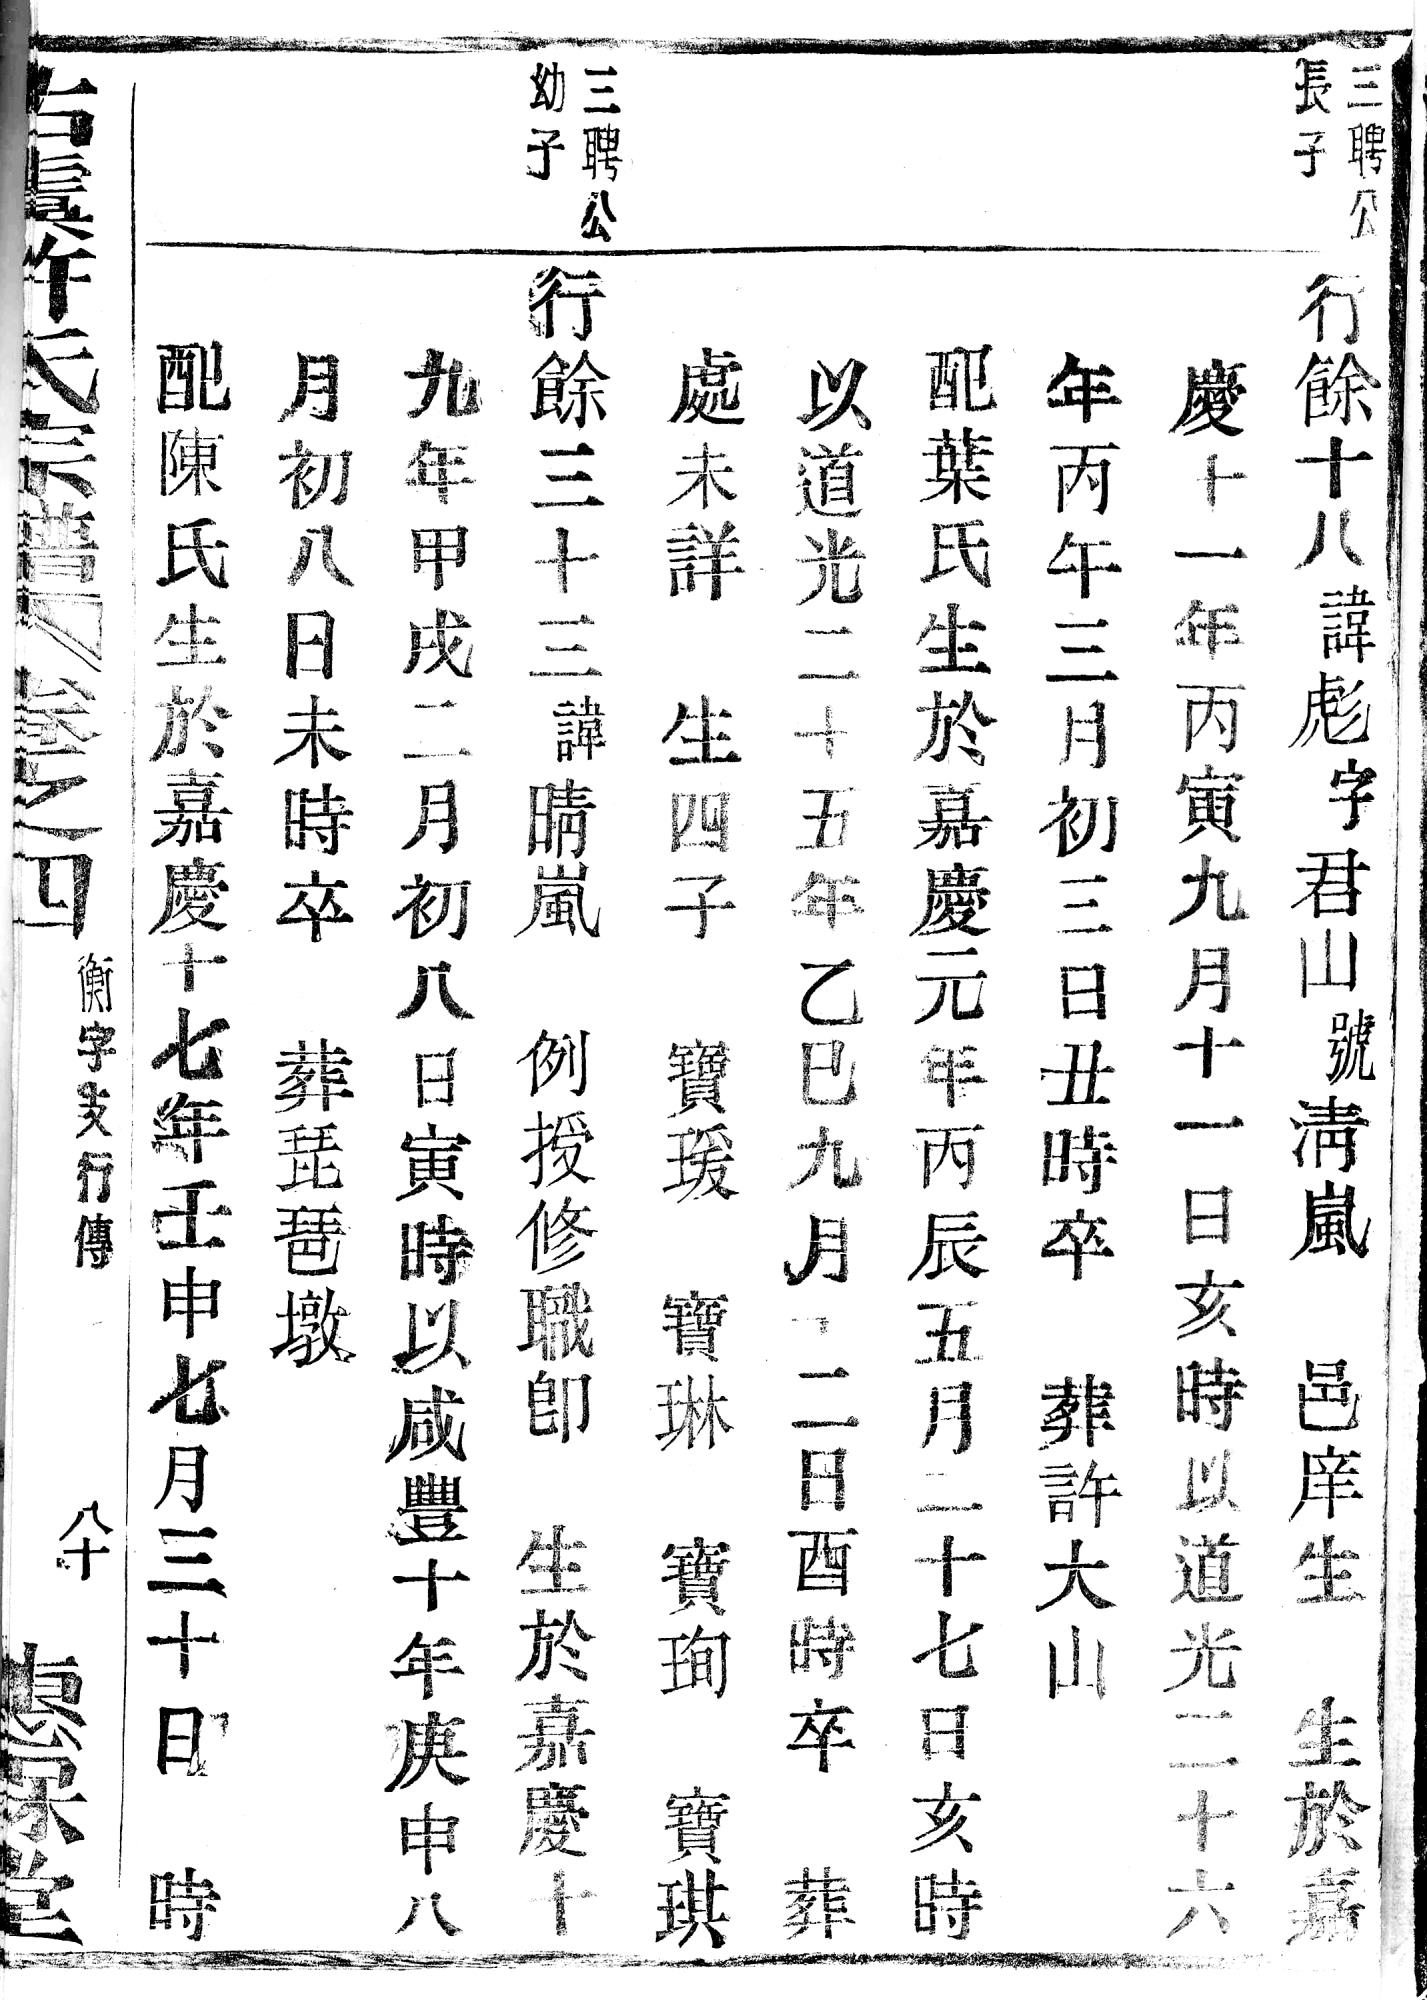 三聘公
長子
行餘十八諱彪字君山號淸嵐　邑庠生　生於嘉
慶十一年丙寅九月十一日亥時以道光二十六
年丙午三月初三日丑時卒　葬許大山
配葉氏生於嘉慶元年丙辰五月二十七日亥時
以道光二十五年乙巳九月二日酉時卒　葬
處未詳　生四子　寶瑗　寶琳　寶珣　寶琪
三聘公
幼子
行餘三十三諱晴嵐　例授修職郎　生於嘉慶十
九年甲戌二月初八日寅時以咸豐十年庚申八
月初八日未時卒　葬琵琶墩
配陳氏生於嘉慶十七年壬申七月三十日　時
古虞許氏宗譜　卷之四　衡字支行傳　八十